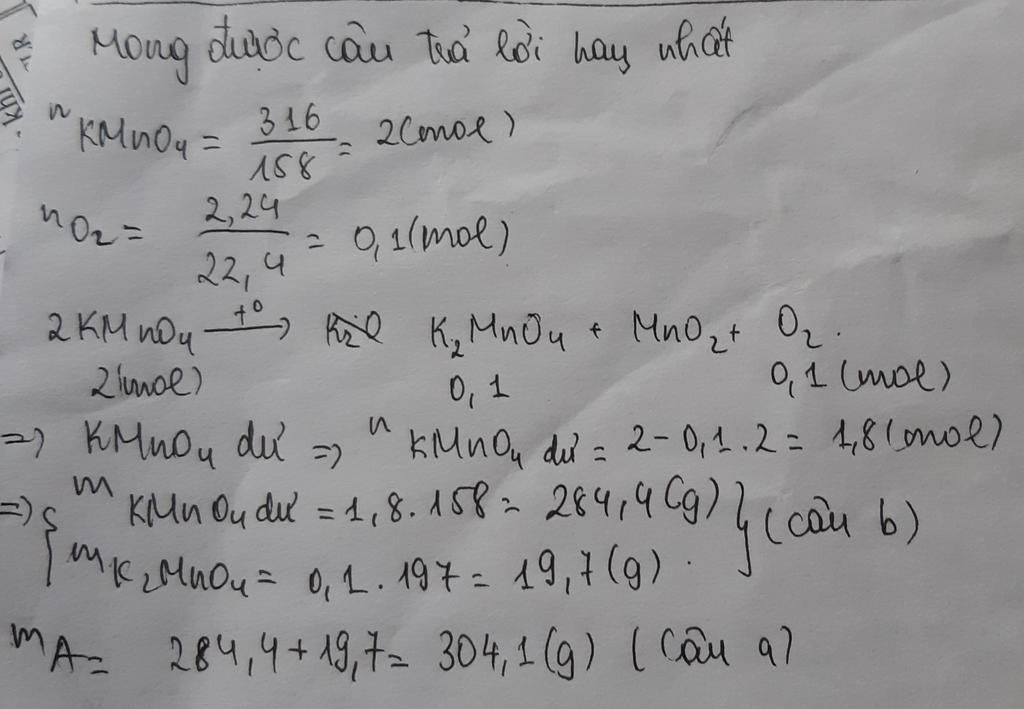 Mong được câu trả lời hay nhất
nKMnO4 = 316/158 = 2(mol)
nO2 = 2,24/22,4 = 0,1(mol)
2KMnO4 →(t°) K2O K2MnO4 + MnO2 + O2.
2(mol) 0,1 0,1(mol)
=> KMnO4 dư => nKMnO4 dư = 2-0,1.2 = 1,8(mol)
=> { mKMnO4 dư = 1,8.158 = 284,4(g) } (câu b)
mK2MnO4 = 0,1.197 = 19,7(g).
mA = 284,4+19,7 = 304,1(g) (Câu a)